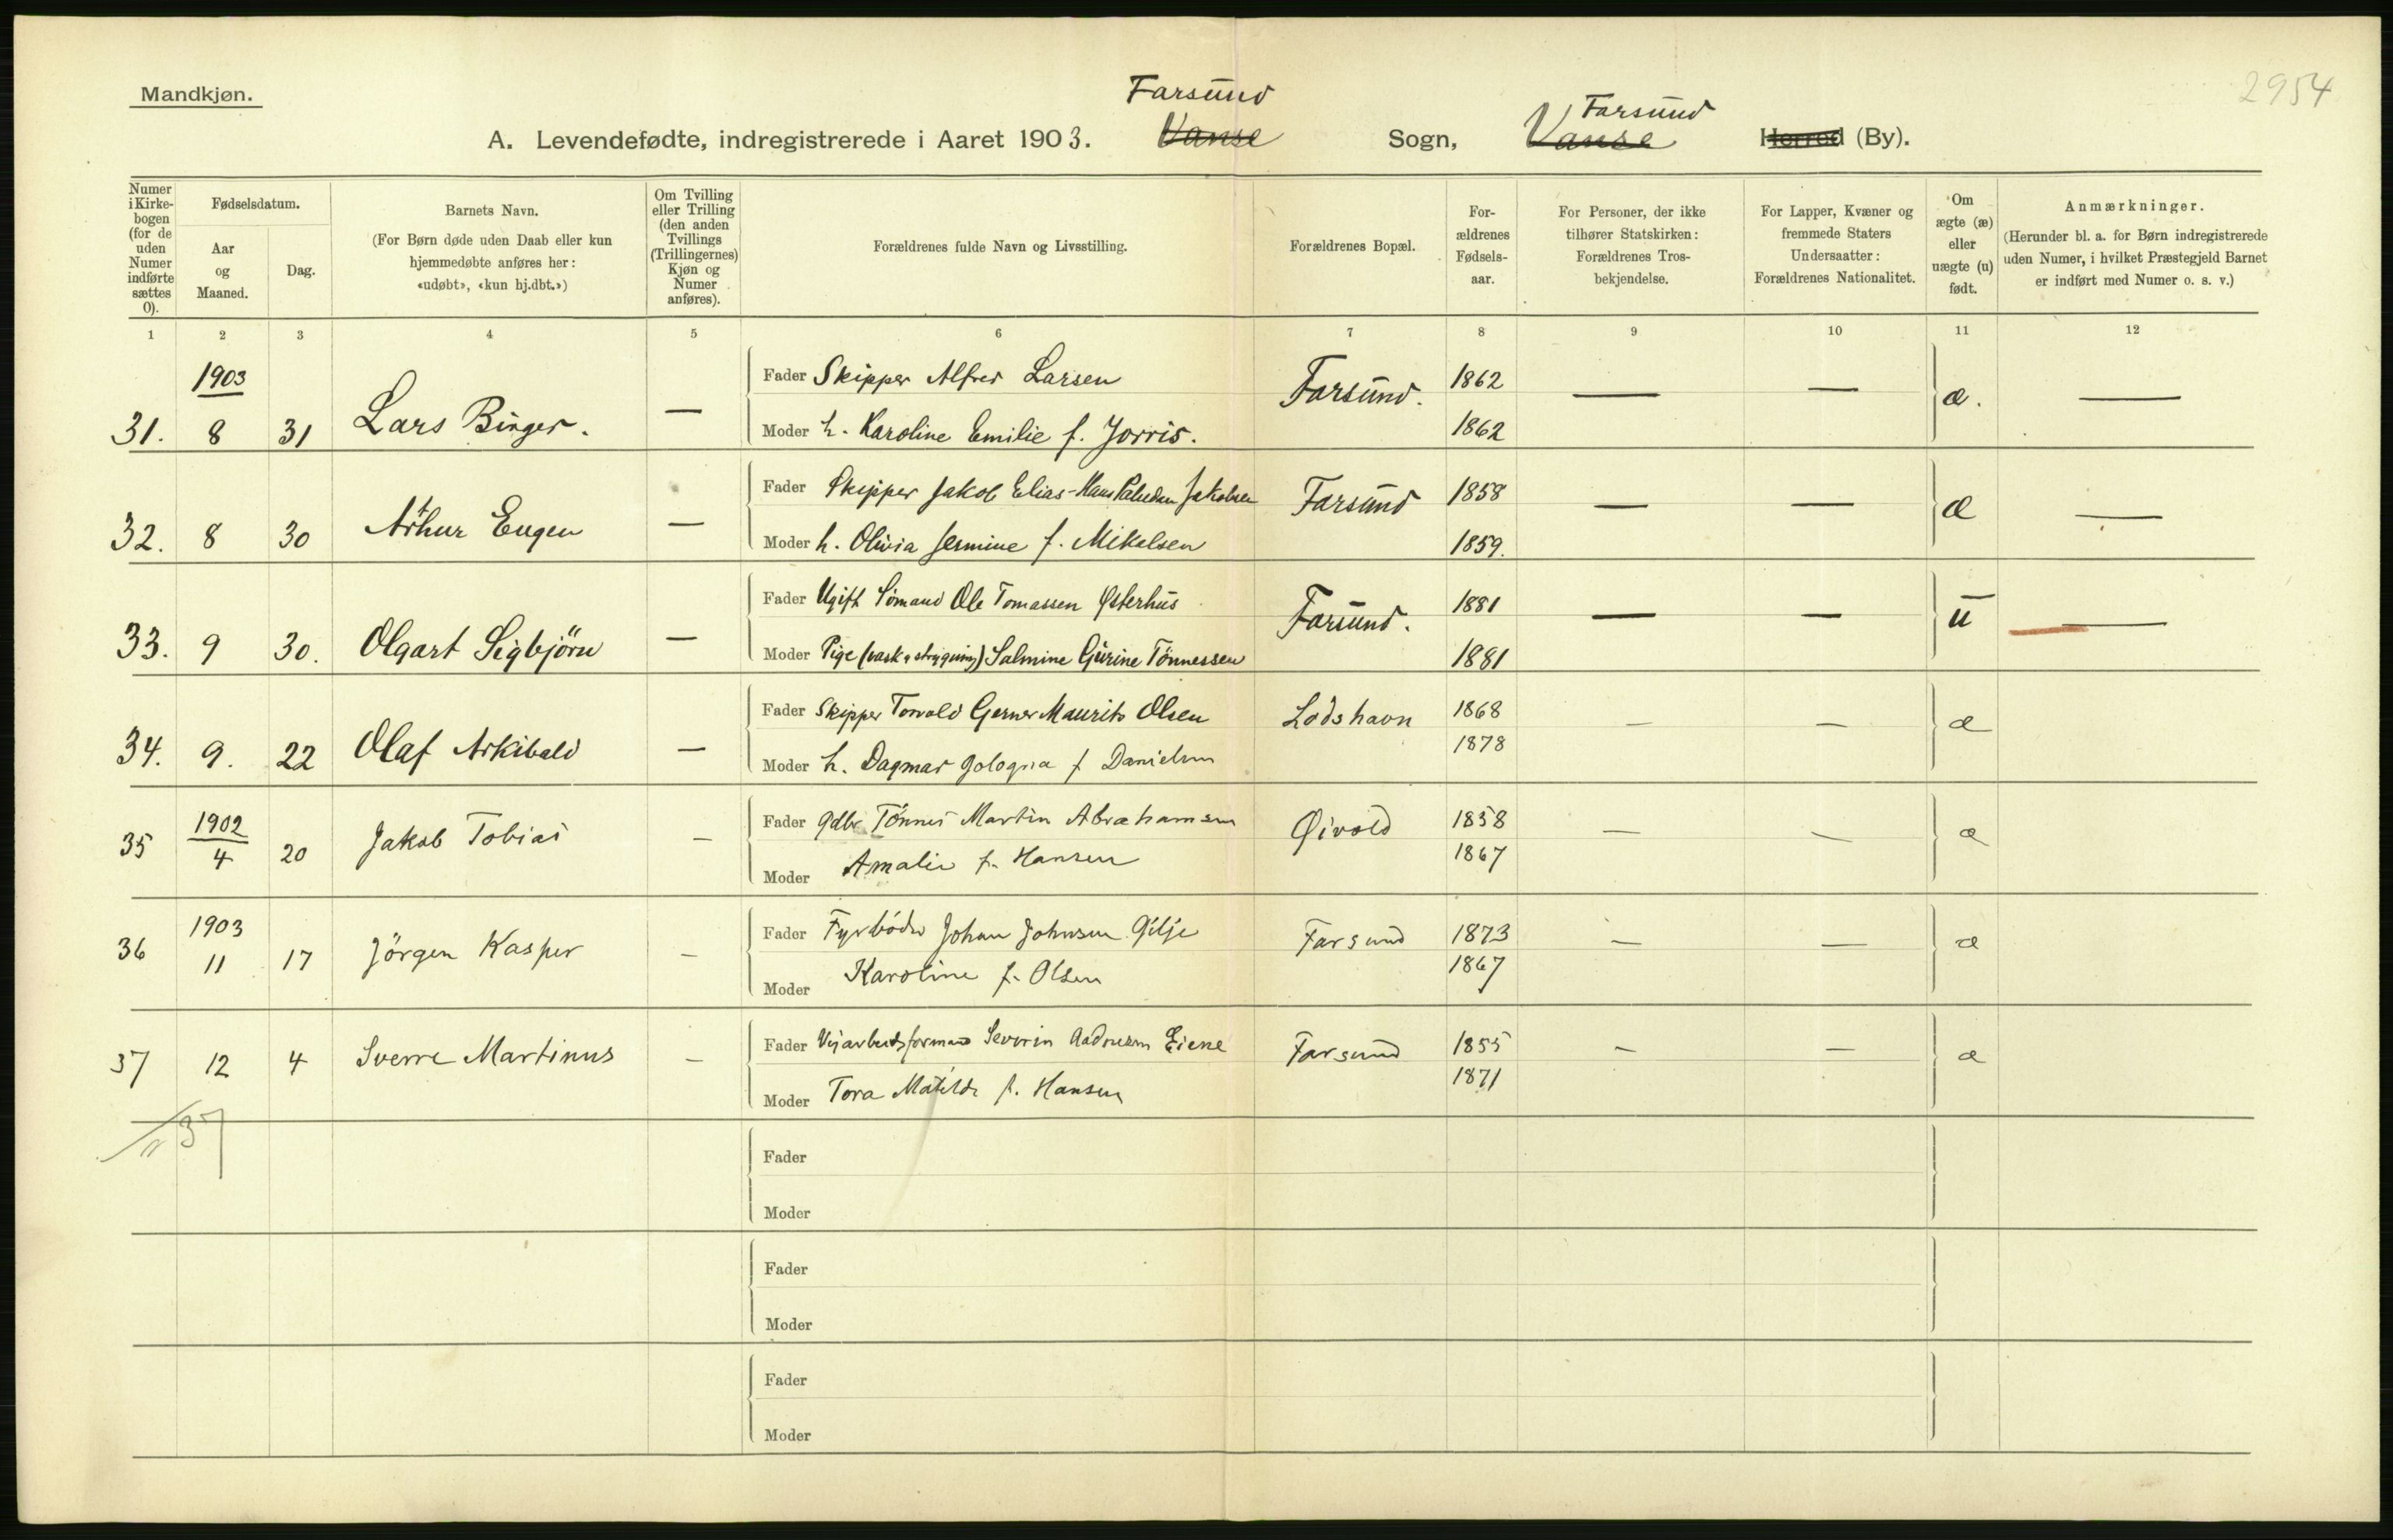 2954
Mandkjøn.
Farsund
Farsund
A. Levendefødte, indregistrerede i Aaret 1903. Vanse Sogn, Vanse Herred (By).
Numer i Kirkebogen (for de uden Numer indførte sættes 0).
Fødselsdatum.
Aar og Maaned.
Dag.
Barnets Navn.
(For Børn døde uden Daab eller kun
hjemmedøbte anføres her:
«udøbt», «kun hj.dbt.»)
Om Tvilling
eller Trilling
(den anden
Tvillings
(Trillingernes)
Kjøn og
Numer
anføres).
Forældrenes fulde Navn og Livsstilling.
Forældrenes Bopæl.
For-
ældrenes
Fødsels-
aar.
For Personer, der ikke
tilhører Statskirken:
Forældrenes Tros-
bekjendelse.
For Lapper, Kvæner og
fremmede Staters
Undersaatter:
Forældrenes Nationalitet.
Om
ægte (æ)
eller
uægte (u)
født.
Anmærkninger.
(Herunder bl. a. for Børn indregistrerede
uden Numer, i hvilket Præstegjeld Barnet
er indført med Numer o. s. v.)
1 2 3 4 5 6 7 8 9 10 11 12
1903
Fader Skipper Alfred Larsen Farsund. 1862 — — æ. —
31. 8 31 Lars Birger. — Moder h. Karoline Emilie f. Jorris. 1862
Fader Skipper Jakob Elias Hans Paludan Jakobsen Farsund 1858 — — æ —
32. 8 30 Arthur Eugen — Moder h. Olivia Jermine f. Mikalsen 1859.
Fader Ugift Sömand Ole Tomassen Østerhus Farsund. 1881 — — u —
33. 9 30. Olgart Sigbjörn — Moder Pige (vask & strygning) Salmine Gurine Tönnessen 1881
Fader Skipper Torvald Gerner Maurits Olsen Lodshavn 1868 — — æ
34. 9. 22 Olaf Arkibald — Moder h. Dagmar f Danielsen 1878
1902
Fader Gdbr. Tönnes Martin Abrahamsen Øivold 1858 — — æ
35 4 20 Jakob Tobias — Moder Amalie f. Hansen 1867
1903
Fader Fyrböder Johan Johnsen Gilje Farsund 1873 — — æ
36 11 17 Jörgen Kasper — Moder Karoline f. Olsen 1867
Fader Veiarbeidsformand Severin Aadnesen Eiene Farsund 1855 — — æ
37 12 4 Sverre Martinus — Moder Tora Matilde f. Hansen 1871
37
Fader
Moder
Fader
Moder
Fader
Moder